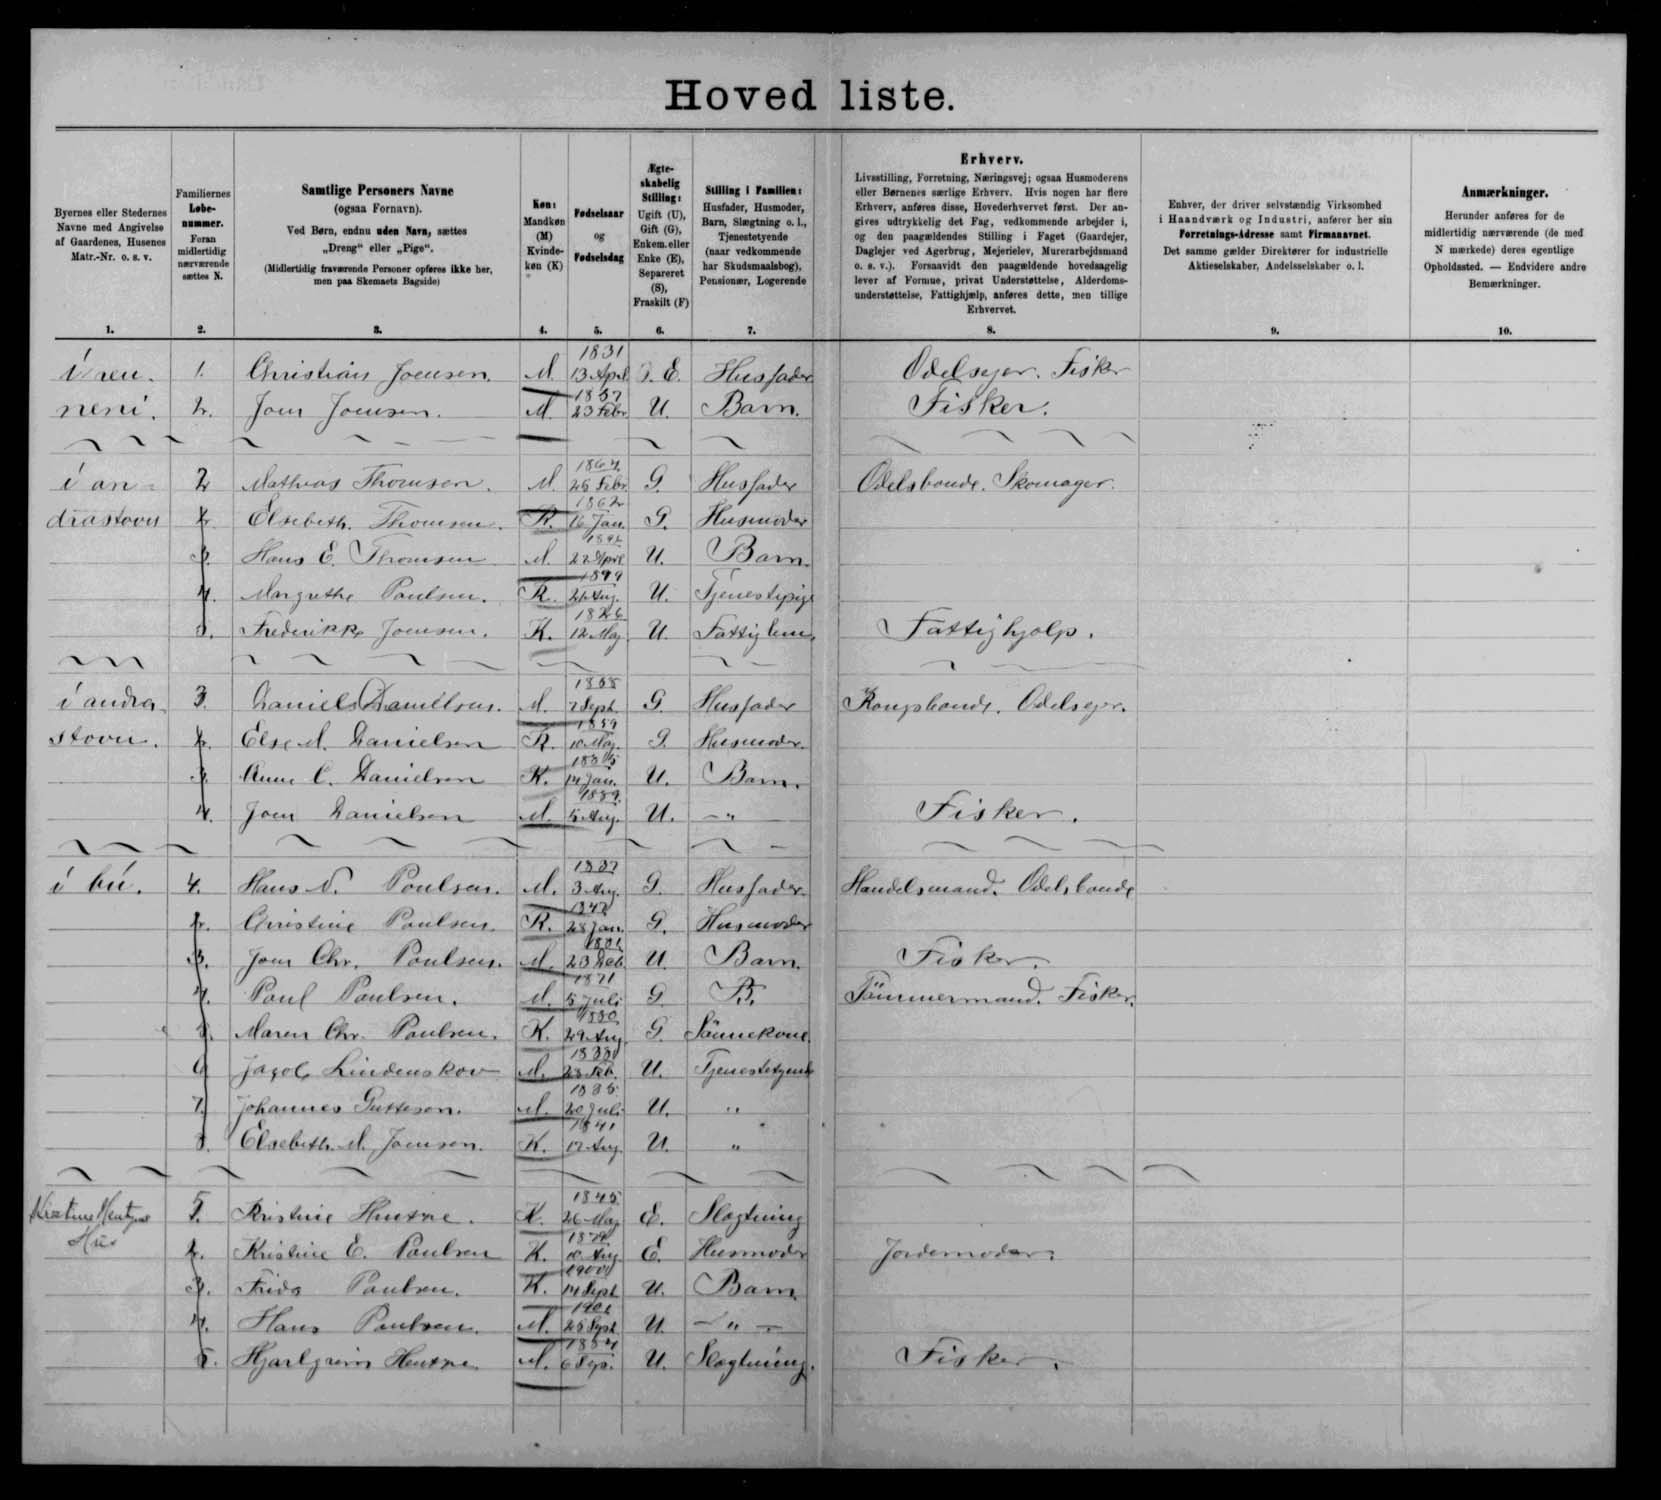 Hoved liste.
Byernes eller Stedernes Navne med Angivelse af Gaardenes, Husenes Matr.-Nr. o. s. v.
Familiernes Løbenummer. Foran midlertidig nærværende sættes N.
Samtlige Personers Navne
(ogsaa Fornavn).
Ved Børn, endnu uden Navn, sættes
„Dreng" eller „Pige".
(Midlertidig fraværende Personer opføres ikke her,
men paa Skemaets Bagside)
Køn:
Mandkøn
(M)
Kvinde-
køn (K)
Fødselsaar
og
Fødselsdag
Ægte-
skabelig
Stilling:
Ugift (U),
Gift (G),
Enkem. eller
Enke (E),
Separeret
(S),
Fraskilt (F)
Stilling i Familien:
Husfader, Husmoder,
Barn, Slægtning o. l.,
Tjenestetyende
(naar vedkommende
har Skudsmaalsbog),
Pensionær, Logerende
Erhverv.
Livsstilling, Forretning, Næringsvej; ogsaa Husmoderens
eller Børnenes særlige Erhverv. Hvis nogen har flere
Erhverv, anføres disse, Hovederhvervet først. Der an-
gives udtrykkelig det Fag, vedkommende arbejder i,
og den paagældendes Stilling i Faget (Gaardejer,
Daglejer ved Agerbrug, Mejerielev, Murerarbejdsmand
o. s. v.). Forsaavidt den paagældende hovedsagelig
lever af Formue, privat Understøttelse, Alderdoms-
understøttelse, Fattighjælp, anføres dette, men tillige
Erhvervet.
Enhver, der driver selvstændig Virksomhed
i Haandværk og Industri, anfører her sin
Forretnings-Adresse samt Firmanavnet.
Det samme gælder Direktører for industrielle
Aktieselskaber, Andelsselskaber o. l.
Anmærkninger.
Herunder anføres for de
midlertidig nærværende (de med
N mærkede) deres egentlige
Opholdssted. — Endvidere andre
Bemærkninger.
1. 2. 3. 4. 5. 6. 7. 8. 9. 10.
1. Christian Joensen. M. 1831 13 April E. Husfader Odelsejer. Fisker
2. Joen Joensen. M. 23 Febr U. Barn. Fisker.
í an- 2 Mathias Thomsen. M. 25 Febr G. Husfader Odelsbonde. Skomager.
drastovu 2. Elsebeth. Thomsen. K. 16 Jan. G. Husmoder
3. Hans E. Thomsen M. 22 April U. Barn.
4. Margrethe Poulsen. K. U. Tjenestepige
5. Frederikke Joensen. K. 1826 12 Maj U. Fattiglem Fattighjælp.
í andra 3. Daniel Danielsen. M. 7 Sept. G. Husfader Kongsbonde. Odelsejer.
stovu. 2. Else M. Danielsen K. 1859 10 Maj. G. Husmoder.
3. Anne C. Danielsen K. 14 Jan. U. Barn.
4. Joen Danielsen M. 1889. 5 Aug. U. -„- Fisker.
í bú. 4. Hans N. Poulsen. M. 3 Aug. G. Husfader. Handelsmand. Odelsbonde
2. Christine Poulsen. K. 28 Jan. G. Husmoder
3. Joen Chr. Poulsen. M. 23 U. Barn. Fisker.
4. Poul Poulsen. M. 1871 5 Juli G. B. Tömmermand. Fisker.
5. Maren Chr. Poulsen. K. 1880 29 Aug G. Sönnekone
6 Lindenskov M. 23 Feb. U. Tjenestetyende
7. Johannes M. 20 Juli U. „
8. Elsebeth M. Joensen. K. 1841 12 Aug U. „
5. Kristine K. 1845 26 Maj E. Slægtning
Hus 2. Kristine E. Poulsen K. 10 Aug E. Husmoder Jordemoder.
3. Frida Poulsen. K. 1900 14 Sept U. Barn
4. Hans Poulsen. M. 25 Sept U. -„-
5. M. 6 Sep. U. Slægtning. Fisker.